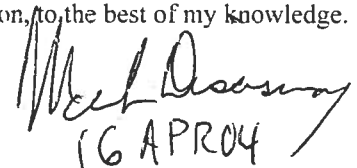 on, to the best of my knowledge.
16 APR04